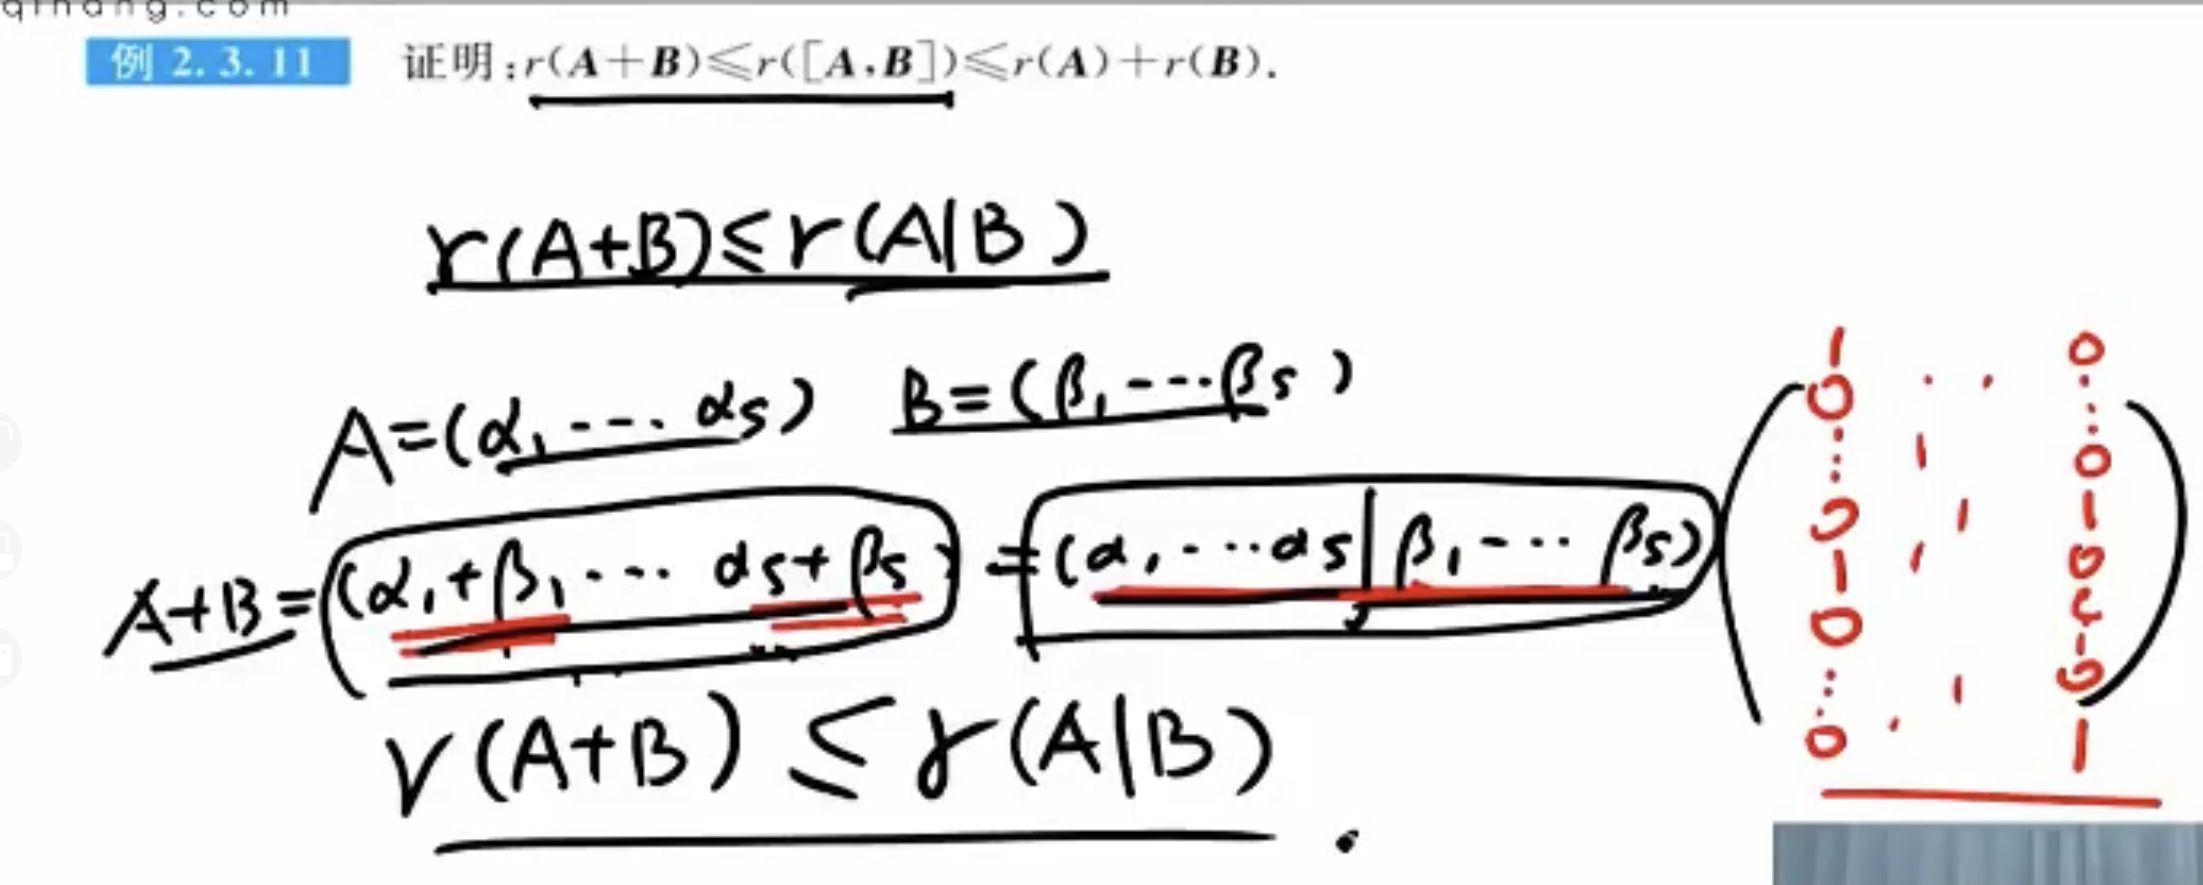 qihang.com
例 2.3.11 证明:r(A+B)≤r([A,B])≤r(A)+r(B).
r(A+B)≤r(A|B)
A=(α₁---αs) B=(β₁---βs)
A+B=(α₁+β₁,--- αs+βs)=(α₁---αs|β₁--- βs)
1 0
0
0
0 1
1 0
0
0 1
r(A+B)≤r(A|B).